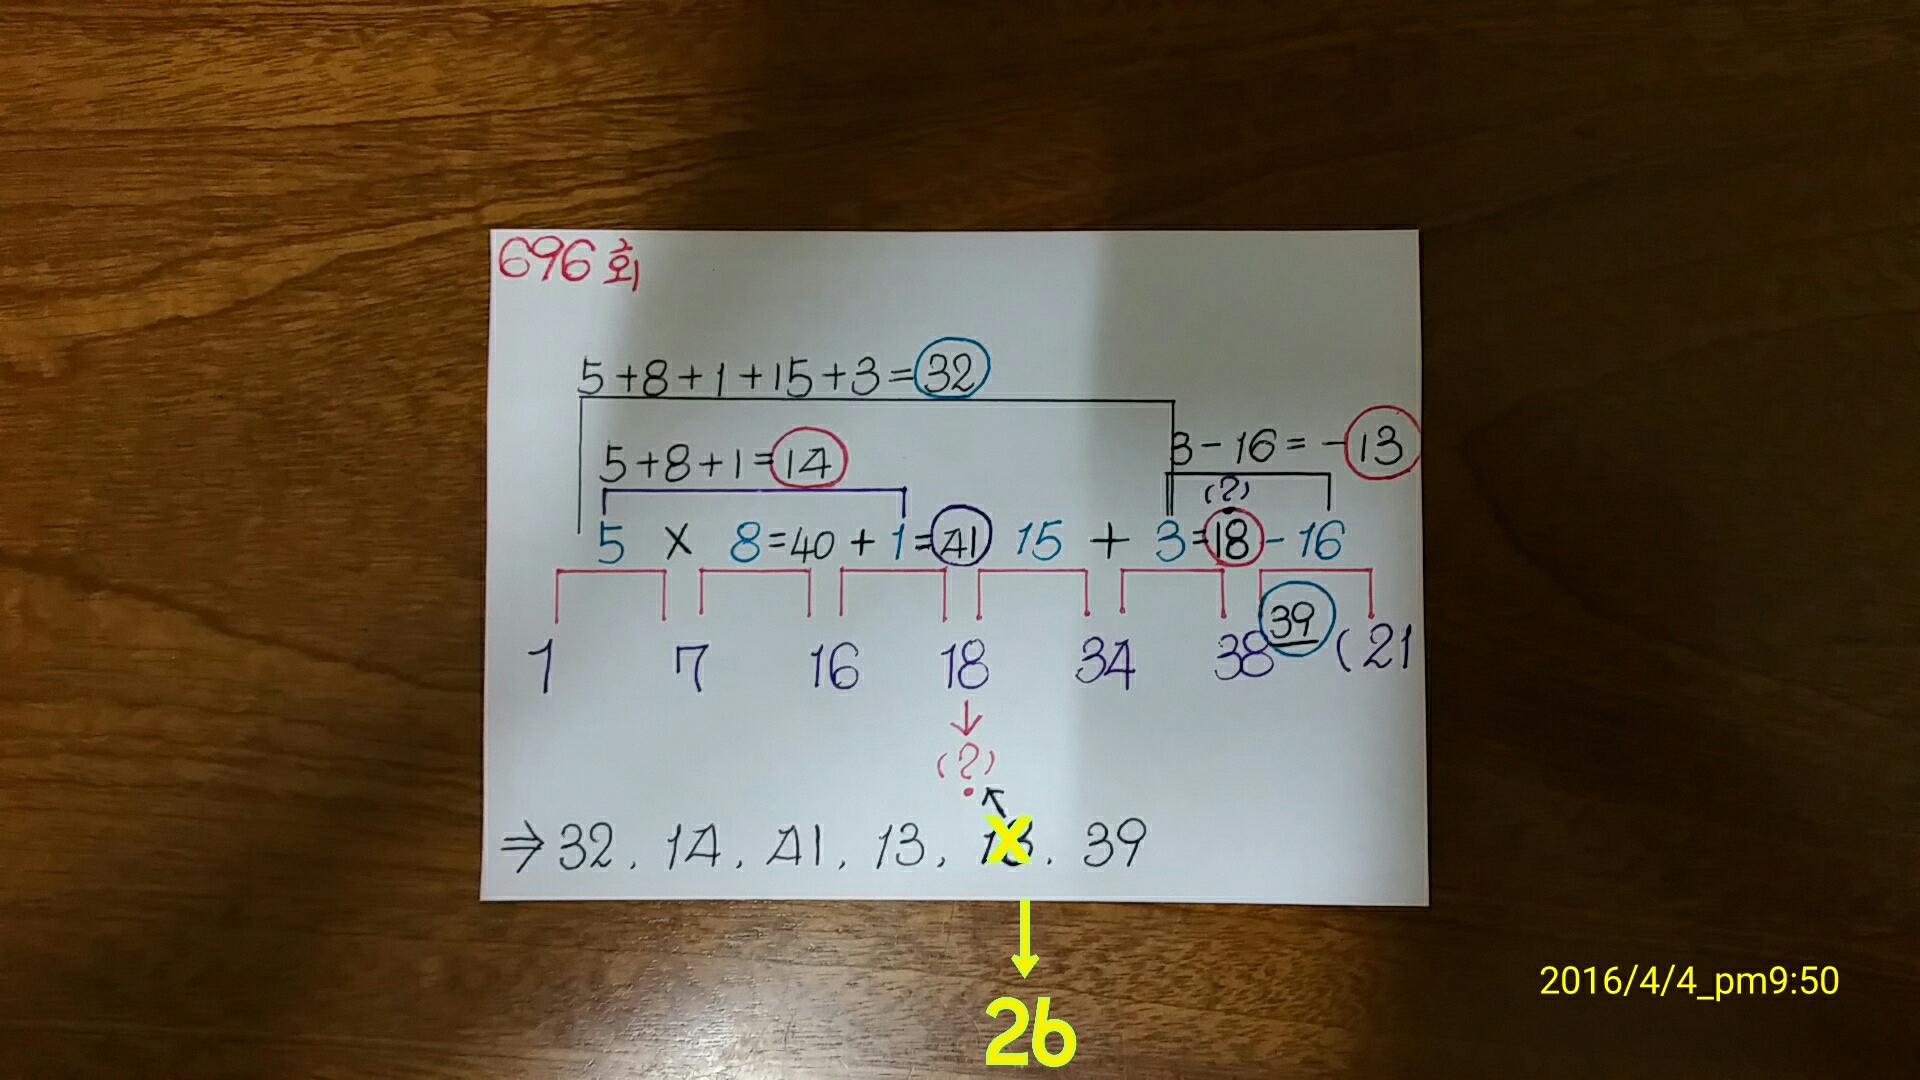 696회
5+8+1+15+3=32
5+8+1=14
3-16=-13
(?)
5 x 8=40+1=41 15 + 3=18-16
39
1 7 16 18 34 38 (21
↓
(?)
⇒32, 14, 41, 13, X, 39
↓
26
2016/4/4_pm9:50